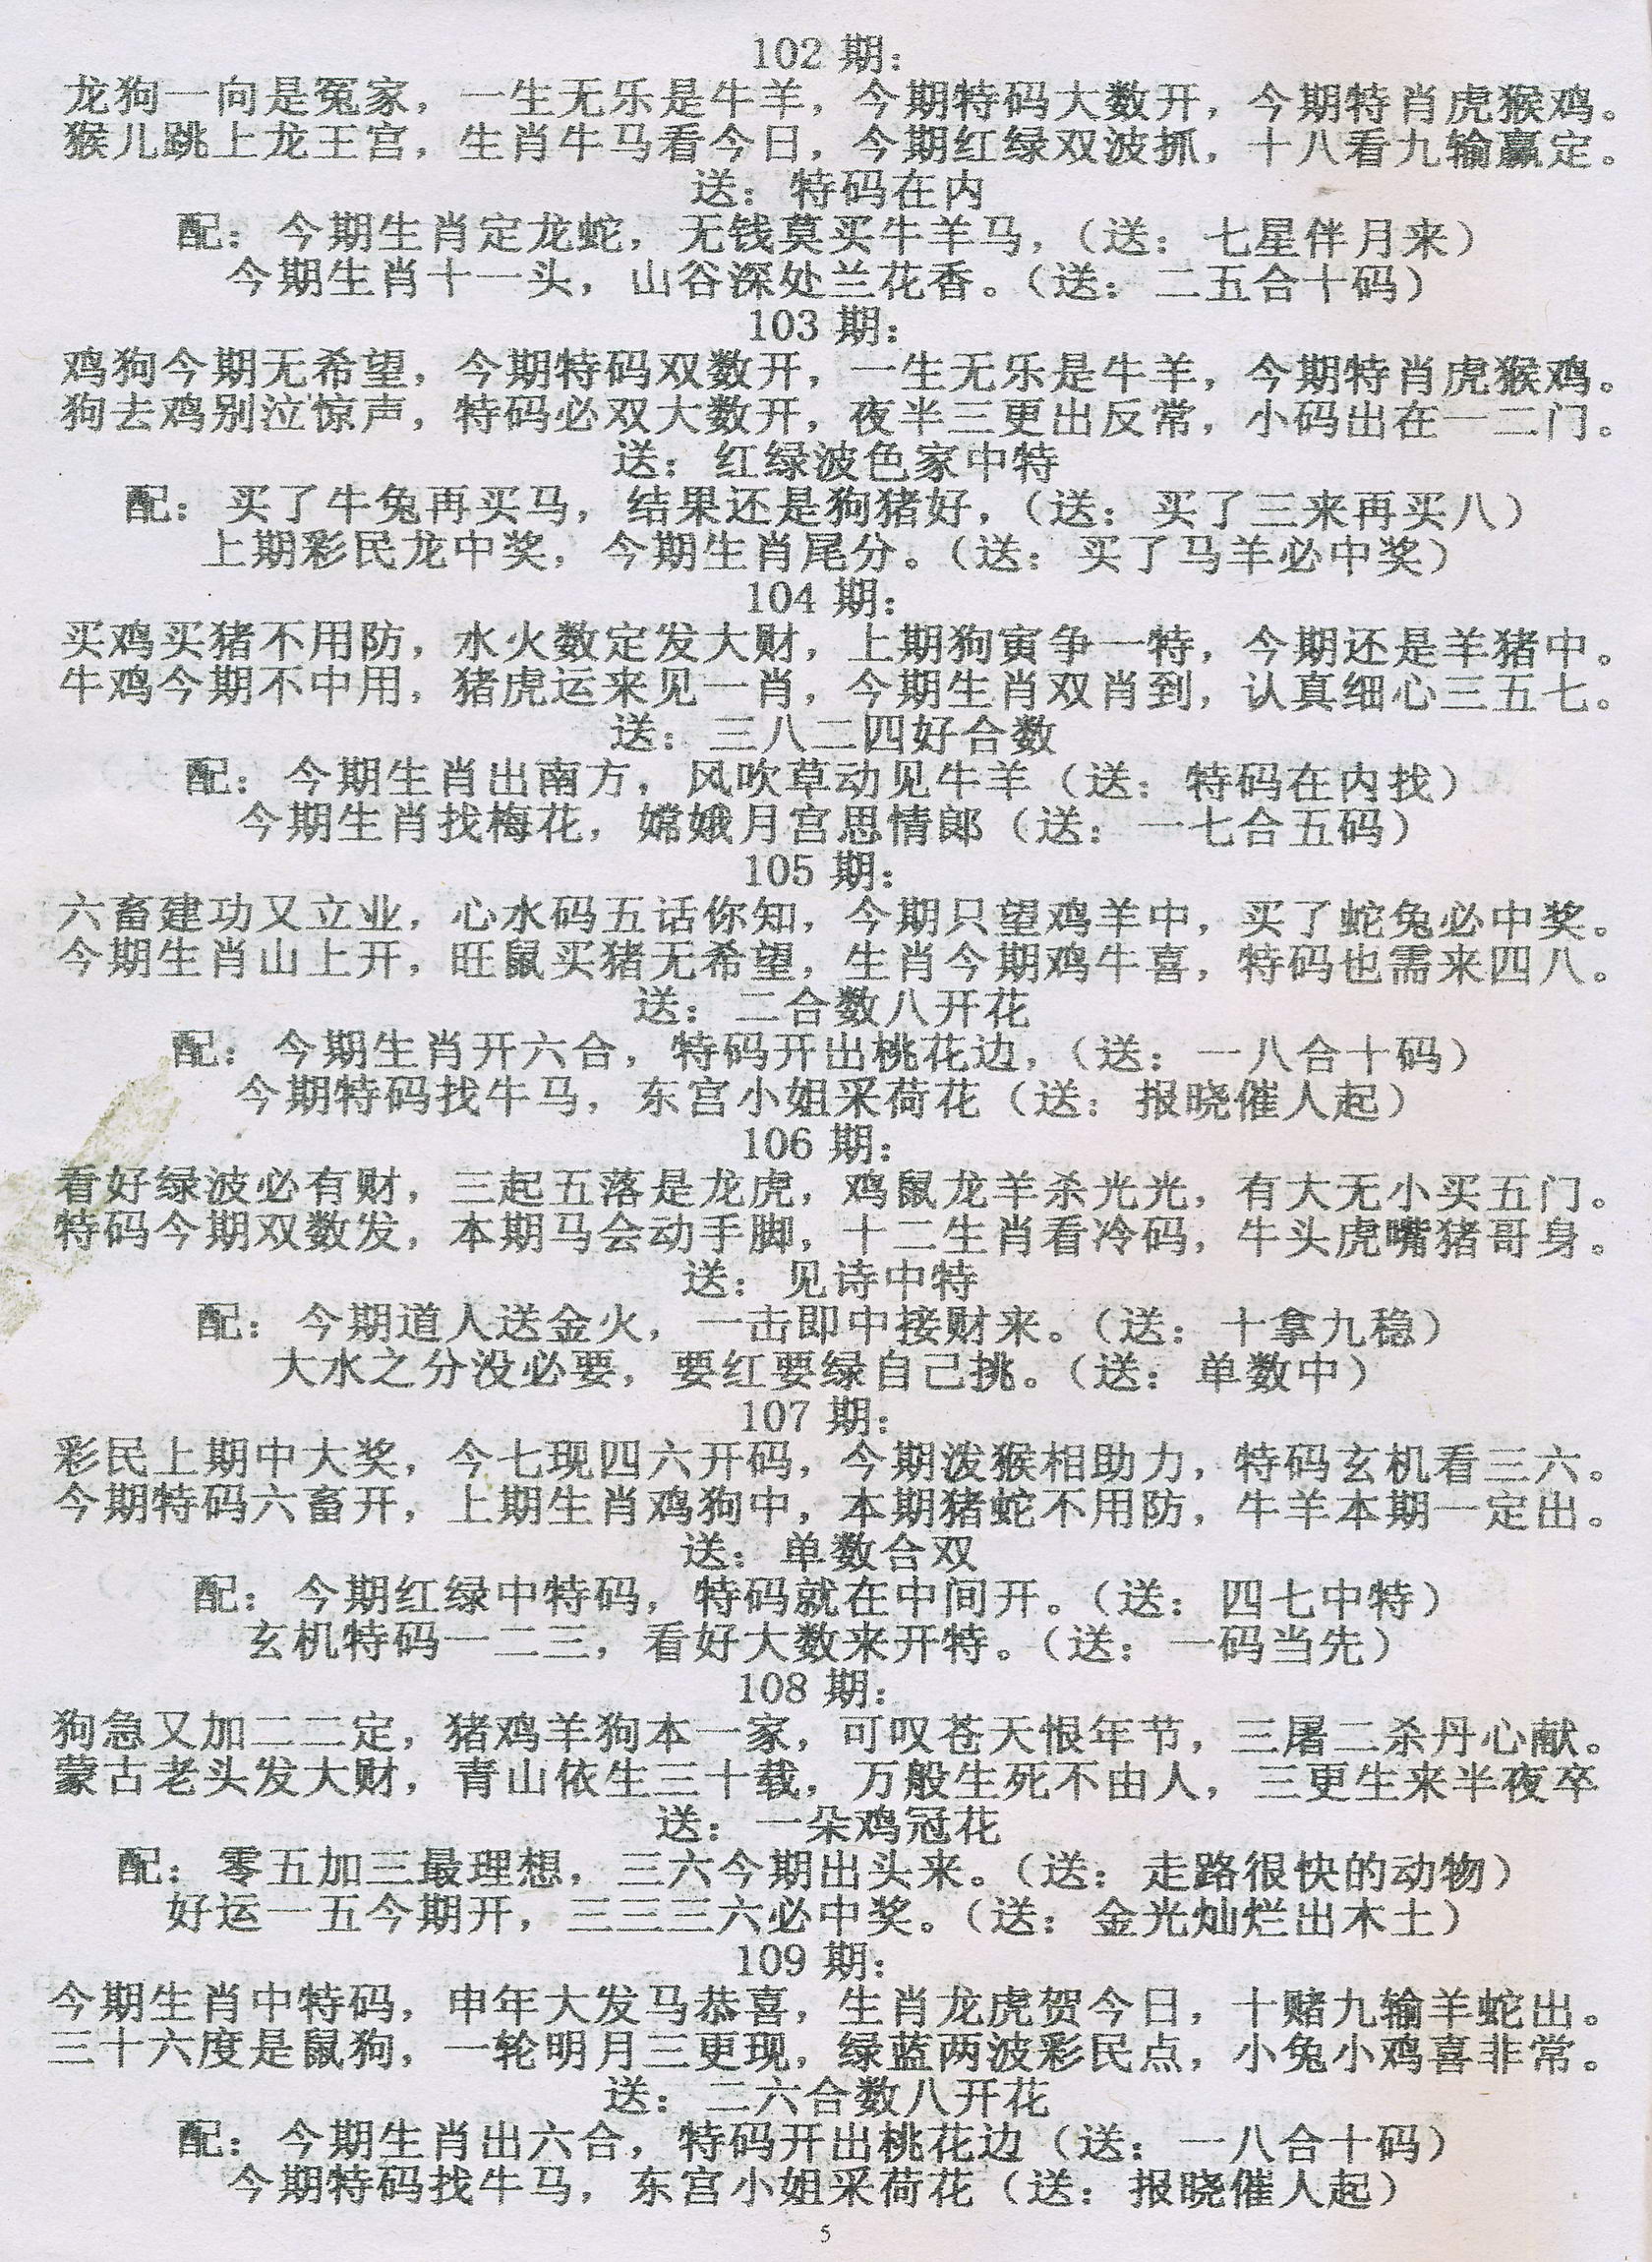 102 期：
龙狗一向是冤家，一生无乐是牛羊，今期特码大数开，今期特肖虎猴鸡。
猴儿跳上龙王宫，生肖牛马看今日，今期红绿双波抓，十八看九输赢定。
送：特码在内
配：今期生肖定龙蛇，无钱莫买牛羊马，（送：七星伴月来）
今期生肖十一头，山谷深处兰花香。（送：二五合十码）
103 期：
鸡狗今期无希望，今期特码双数开，一生无乐是牛羊，今期特肖虎猴鸡。
狗去鸡别泣惊声，特码必双大数开，夜半三更出反常，小码出在一二门。
送：红绿波色家中特
配：买了牛兔再买马，结果还是狗猪好，（送：买了三来再买八）
上期彩民龙中奖，今期生肖尾分。（送：买了马羊必中奖）
104 期：
买鸡买猪不用防，水火数定发大财，上期狗寅争一特，今期还是羊猪中。
牛鸡今期不中用，猪虎运来见一肖，今期生肖双肖到，认真细心三五七。
送：三八二四好合数
配：今期生肖出南方，风吹草动见牛羊（送：特码在内找）
今期生肖找梅花，嫦娥月宫思情郎（送：一七合五码）
105 期：
六畜建功又立业，心水码五话你知，今期只望鸡羊中，买了蛇兔必中奖。
今期生肖山上开，旺鼠买猪无希望，生肖今期鸡牛喜，特码也需来四八。
送：二合数八开花
配：今期生肖开六合，特码开出桃花边，（送：一八合十码）
今期特码找牛马，东宫小姐采荷花（送：报晓催人起）
106 期：
看好绿波必有财，三起五落是龙虎，鸡鼠龙羊杀光光，有大无小买五门。
特码今期双数发，本期马会动手脚，十二生肖看冷码，牛头虎嘴猪哥身。
送：见诗中特
配：今期道人送金火，一击即中接财来。（送：十拿九稳）
大水之分没必要，要红要绿自己挑。（送：单数中）
107 期：
彩民上期中大奖，今七现四六开码，今期泼猴相助力，特码玄机看三六。
今期特码六畜开，上期生肖鸡狗中，本期猪蛇不用防，牛羊本期一定出。
送：单数合双
配：今期红绿中特码，特码就在中间开。（送：四七中特）
玄机特码一二三，看好大数来开特。（送：一码当先）
108 期：
狗急又加二二定，猪鸡羊狗本一家，可叹苍天恨年节，三屠二杀丹心献。
蒙古老头发大财，青山依生三十载，万般生死不由人，三更生来半夜卒
送：一朵鸡冠花
配：零五加三最理想，三六今期出头来。（送：走路很快的动物）
好运一五今期开，三三三六必中奖。（送：金光灿烂出木土）
109 期：
今期生肖中特码，申年大发马恭喜，生肖龙虎贺今日，十赌九输羊蛇出。
三十六度是鼠狗，一轮明月三更现，绿蓝两波彩民点，小兔小鸡喜非常。
送：二六合数八开花
配：今期生肖出六合，特码开出桃花边（送：一八合十码）
今期特码找牛马，东宫小姐采荷花（送：报晓催人起）
5